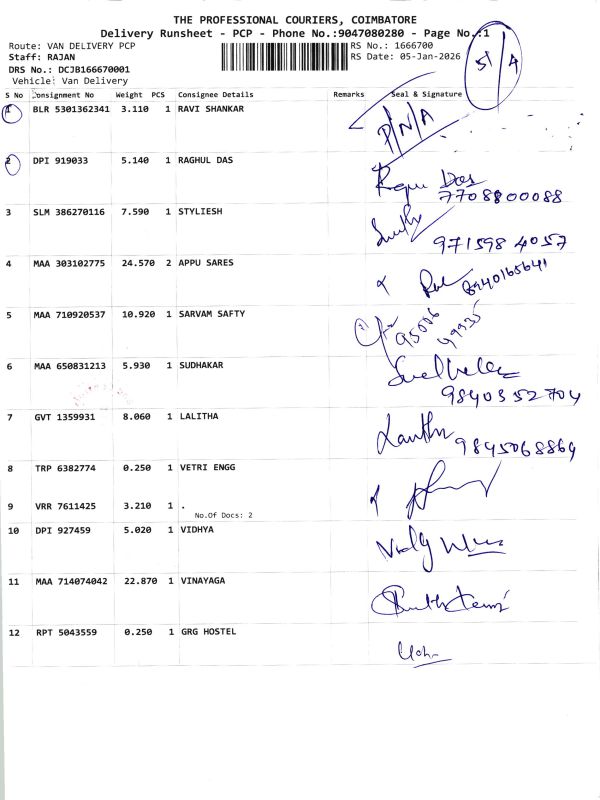 THE PROFESSIONAL COURIERS, COIMBATORE
Delivery Runsheet - PCP - Phone No.:9047080280 - Page No.:1
Route: VAN DELIVERY PCP
RS No.: 1666700
Staff: RAJAN
RS Date: 05-Jan-2026
DRS No.: DCJB166670001
Vehicle: Van Delivery
5/4
S No Consignment No Weight PCS Consignee Details Remarks Seal & Signature
1 BLR 5301362341 3.110 1 RAVI SHANKAR D/N/A
2 DPI 919033 5.140 1 RAGHUL DAS
Das
7708800088
3 SLM 386270116 7.590 1 STYLIESH
971598 4057
4 MAA 303102775 24.570 2 APPU SARES
8940165641
5 MAA 710920537 10.920 1 SARVAM SAFTY
95006
49935
6 MAA 650831213 5.930 1 SUDHAKAR
9840352704
7 GVT 1359931 8.060 1 LALITHA
9845068864
8 TRP 6382774 0.250 1 VETRI ENGG
9 VRR 7611425 3.210 1 .
No.Of Docs: 2
10 DPI 927459 5.020 1 VIDHYA
11 MAA 714074042 22.870 1 VINAYAGA
12 RPT 5043559 0.250 1 GRG HOSTEL